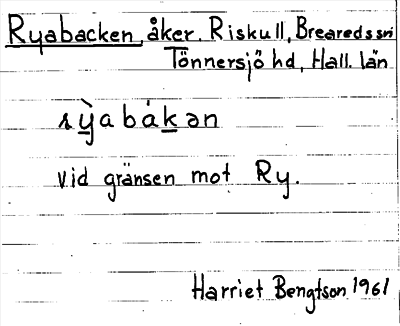 Ryabacken, åker. Riskull, Breareds sn
Tönnersjö hd, Hall. län
rỳabák̲ən
vid gränsen mot Ry.
Harriet Bengtson 1961